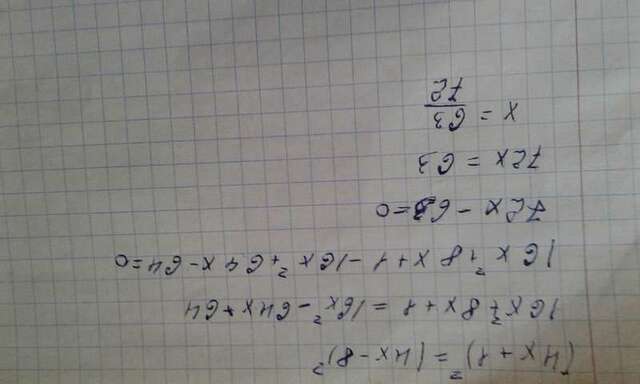 (4x+1)² = (4x-8)²
16x²+8x+1 = 16x²-64x+64
16x²+8x+1-16x²+64x-64=0
72x-63=0
72x=63
x = 63/72